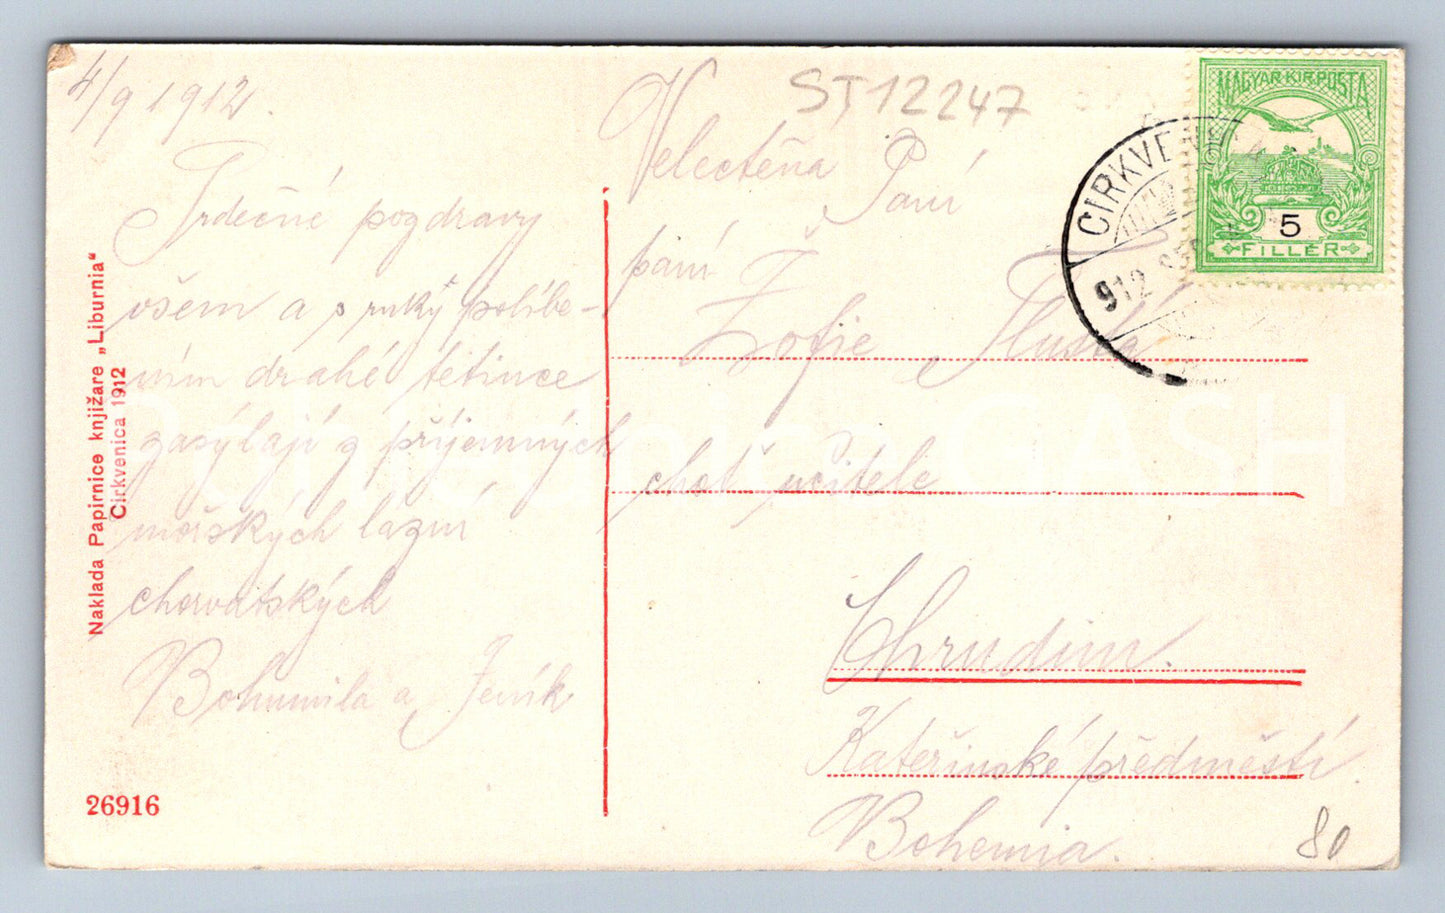 4/9 1912.
Srdečné pozdravy
všem a s ruky políbe-
ním drahé tetince
zasýlají z příjemných
mořských lázní
chorvatských
Bohumila a Jeník
Naklada Papirnice knjižare „Liburnia“
Cirkvenica 1912
26916
ST12247
Velectěná Paní
paní
Žofie Tlustá
choť učitele
Chrudim.
Kateřinské předměstí
Bohemia.
80
MAGYAR KIR. POSTA
5
FILLÉR
CIRKVENICA
912